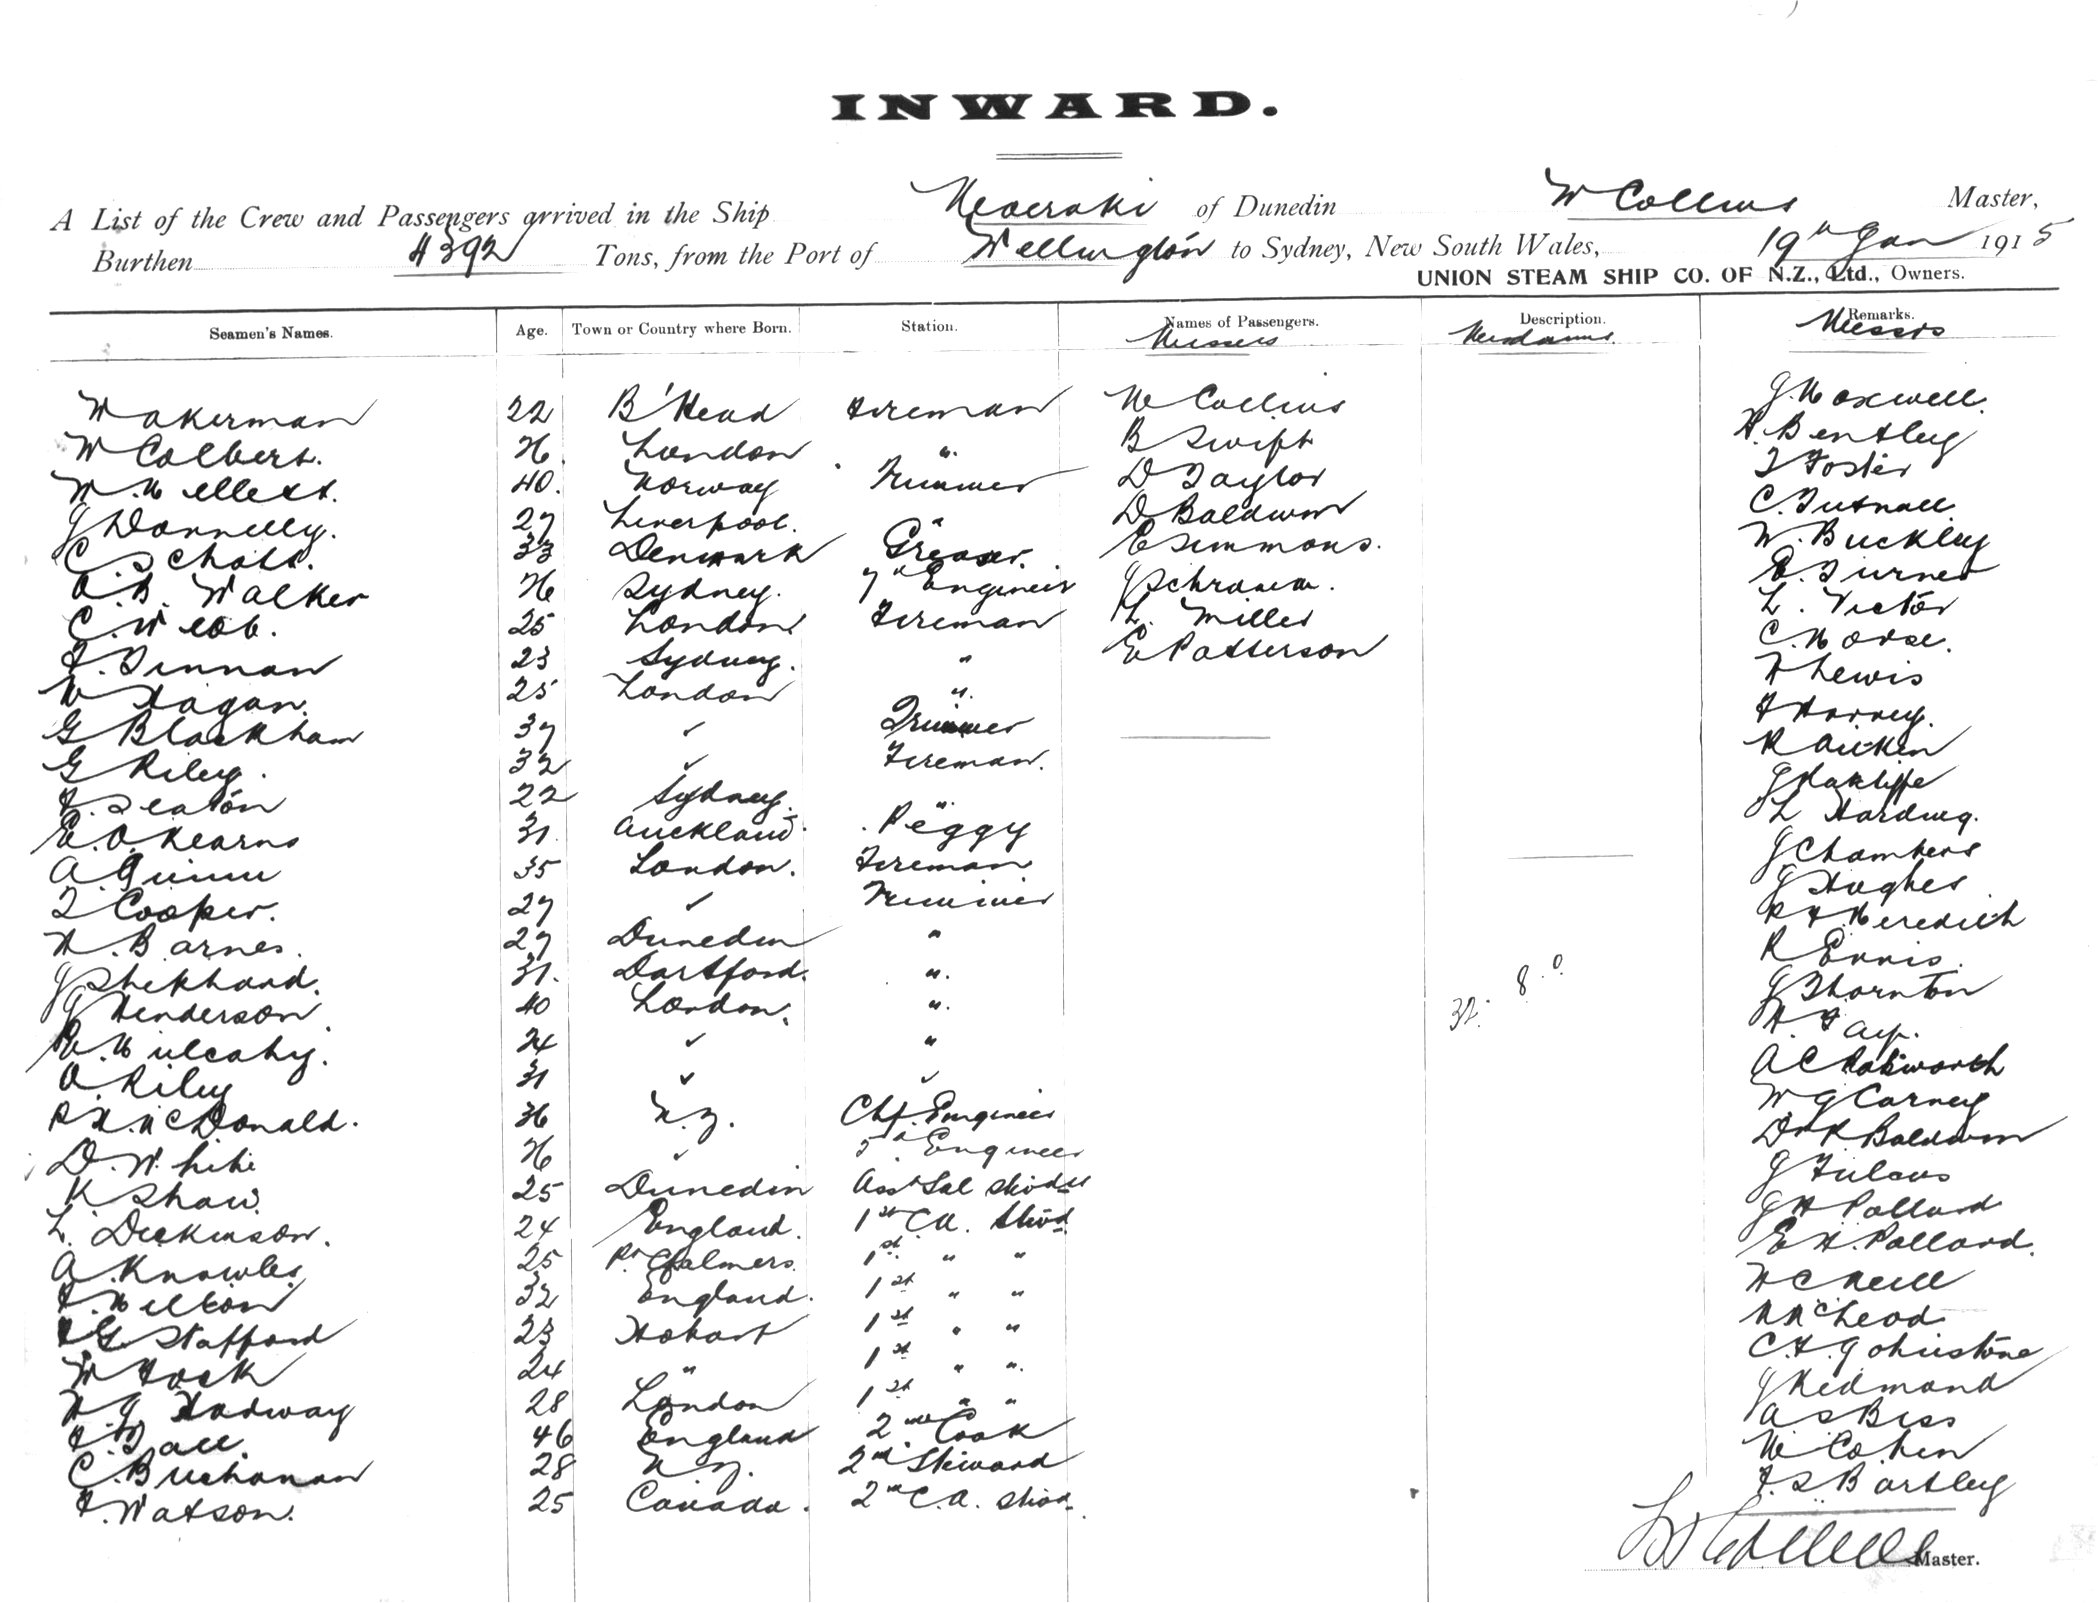 INWARD.
A List of the Crew and Passengers arrived in the Ship Moeraki of Dunedin W Collins Master,
Burthen 4392 Tons, from the Port of Wellington to Sydney, New South Wales, 19th Jan 1915
UNION STEAM SHIP CO. OF N.Z., Ltd., Owners.
Seamen's Names. Age. Town or Country where Born. Station. Names of Passengers. Description. Remarks.
Messrs Mesdames Messrs
W Akerman 22 B'Head Fireman W Collins J. Maxwell.
W Colbert. 26. London " B Swift H. Bentley
W. Mellett. 40. Norway Trimmer D Taylor T Foster
J Donnelly. 27 Liverpool. " D Baldwin C. Tutnall
C. Schott. 33 Denmark Greaser. E Simmons. W. Buckley
A. B. Walker 26 Sydney. 7th Engineer J Schramm. E. Turner
C. Webb. 25 London Fireman L. Miller L. Victor
F. Tinnan 23 Sydney. " E Patterson C. Morse.
W Hagan. 25 London " H Lewis
G Blackham 37 ✓ Trimmer F Harvey.
G Riley. 32 ✓ Fireman. R Aitken
F Seaton 22 Sydney. " J Rakliffe
E. O. Kearns 31. Auckland. Peggy L Harding.
A. Quinn 35 London. Fireman J Chambers
T Cooper. 27 ✓ Trimmer J Hughes
H. Barnes. 27 Dunedin " R H Meredith
J Shephard. 31. Dartford. " R Ennis.
G Henderson. 40 London. " J Thornton
E. Mulcahy. 24 ✓ " H. Fay.
A. Riley 31 ✓ ✓ A C Robiworth
R. H. McDonald. 36 N. Z. Chf. Engineer W G Carney
D. White 26 ✓ 5th Engineer D R Baldwin
K Shaw. 25 Dunedin Asst Sal Stwdss J Fulcus
L. Dickinson. 24 England. 1st C. A. Stwd. G H Pollard
A. Knowles 25 Pt Chalmers. 1st " " E H. Pollard.
F. Milton 32 England. 1st " " W C Neill
H G. Stafford 23 Hobart 1st " " N McLeod
W Hock 24 " 1st " " C. H. Johnstone
H J Hadway 28 London 1st " " J Redmond
F. Ball. 46 England 2nd Cook A S Biss
C. Buchanan 28 N. Z. 2nd Steward W Cohen
F. Watson. 25 Canada. 2nd C. A. Stwd. F. S Bartley
Master.